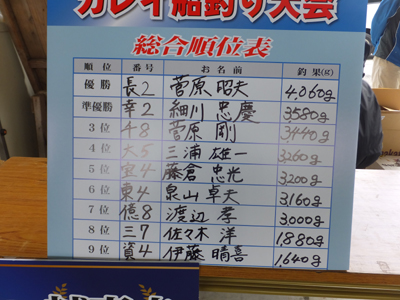 カレイ船釣り大会
総合順位表
順位 番号 お名前 釣果(g)
優勝 長2 菅原 昭夫 4,060g
準優勝 幸2 細川 忠慶 3,580g
3位 菅原 剛 3,440g
4位 大5 三浦 雄一 3,260g
5位 宜4 藤倉 忠光 3,200g
6位 東4 泉山 卓夫 3,160g
7位 億8 渡辺 孝 3,000g
8位 三7 佐々木 洋 1,880g
9位 資4 伊藤 晴喜 1,640g